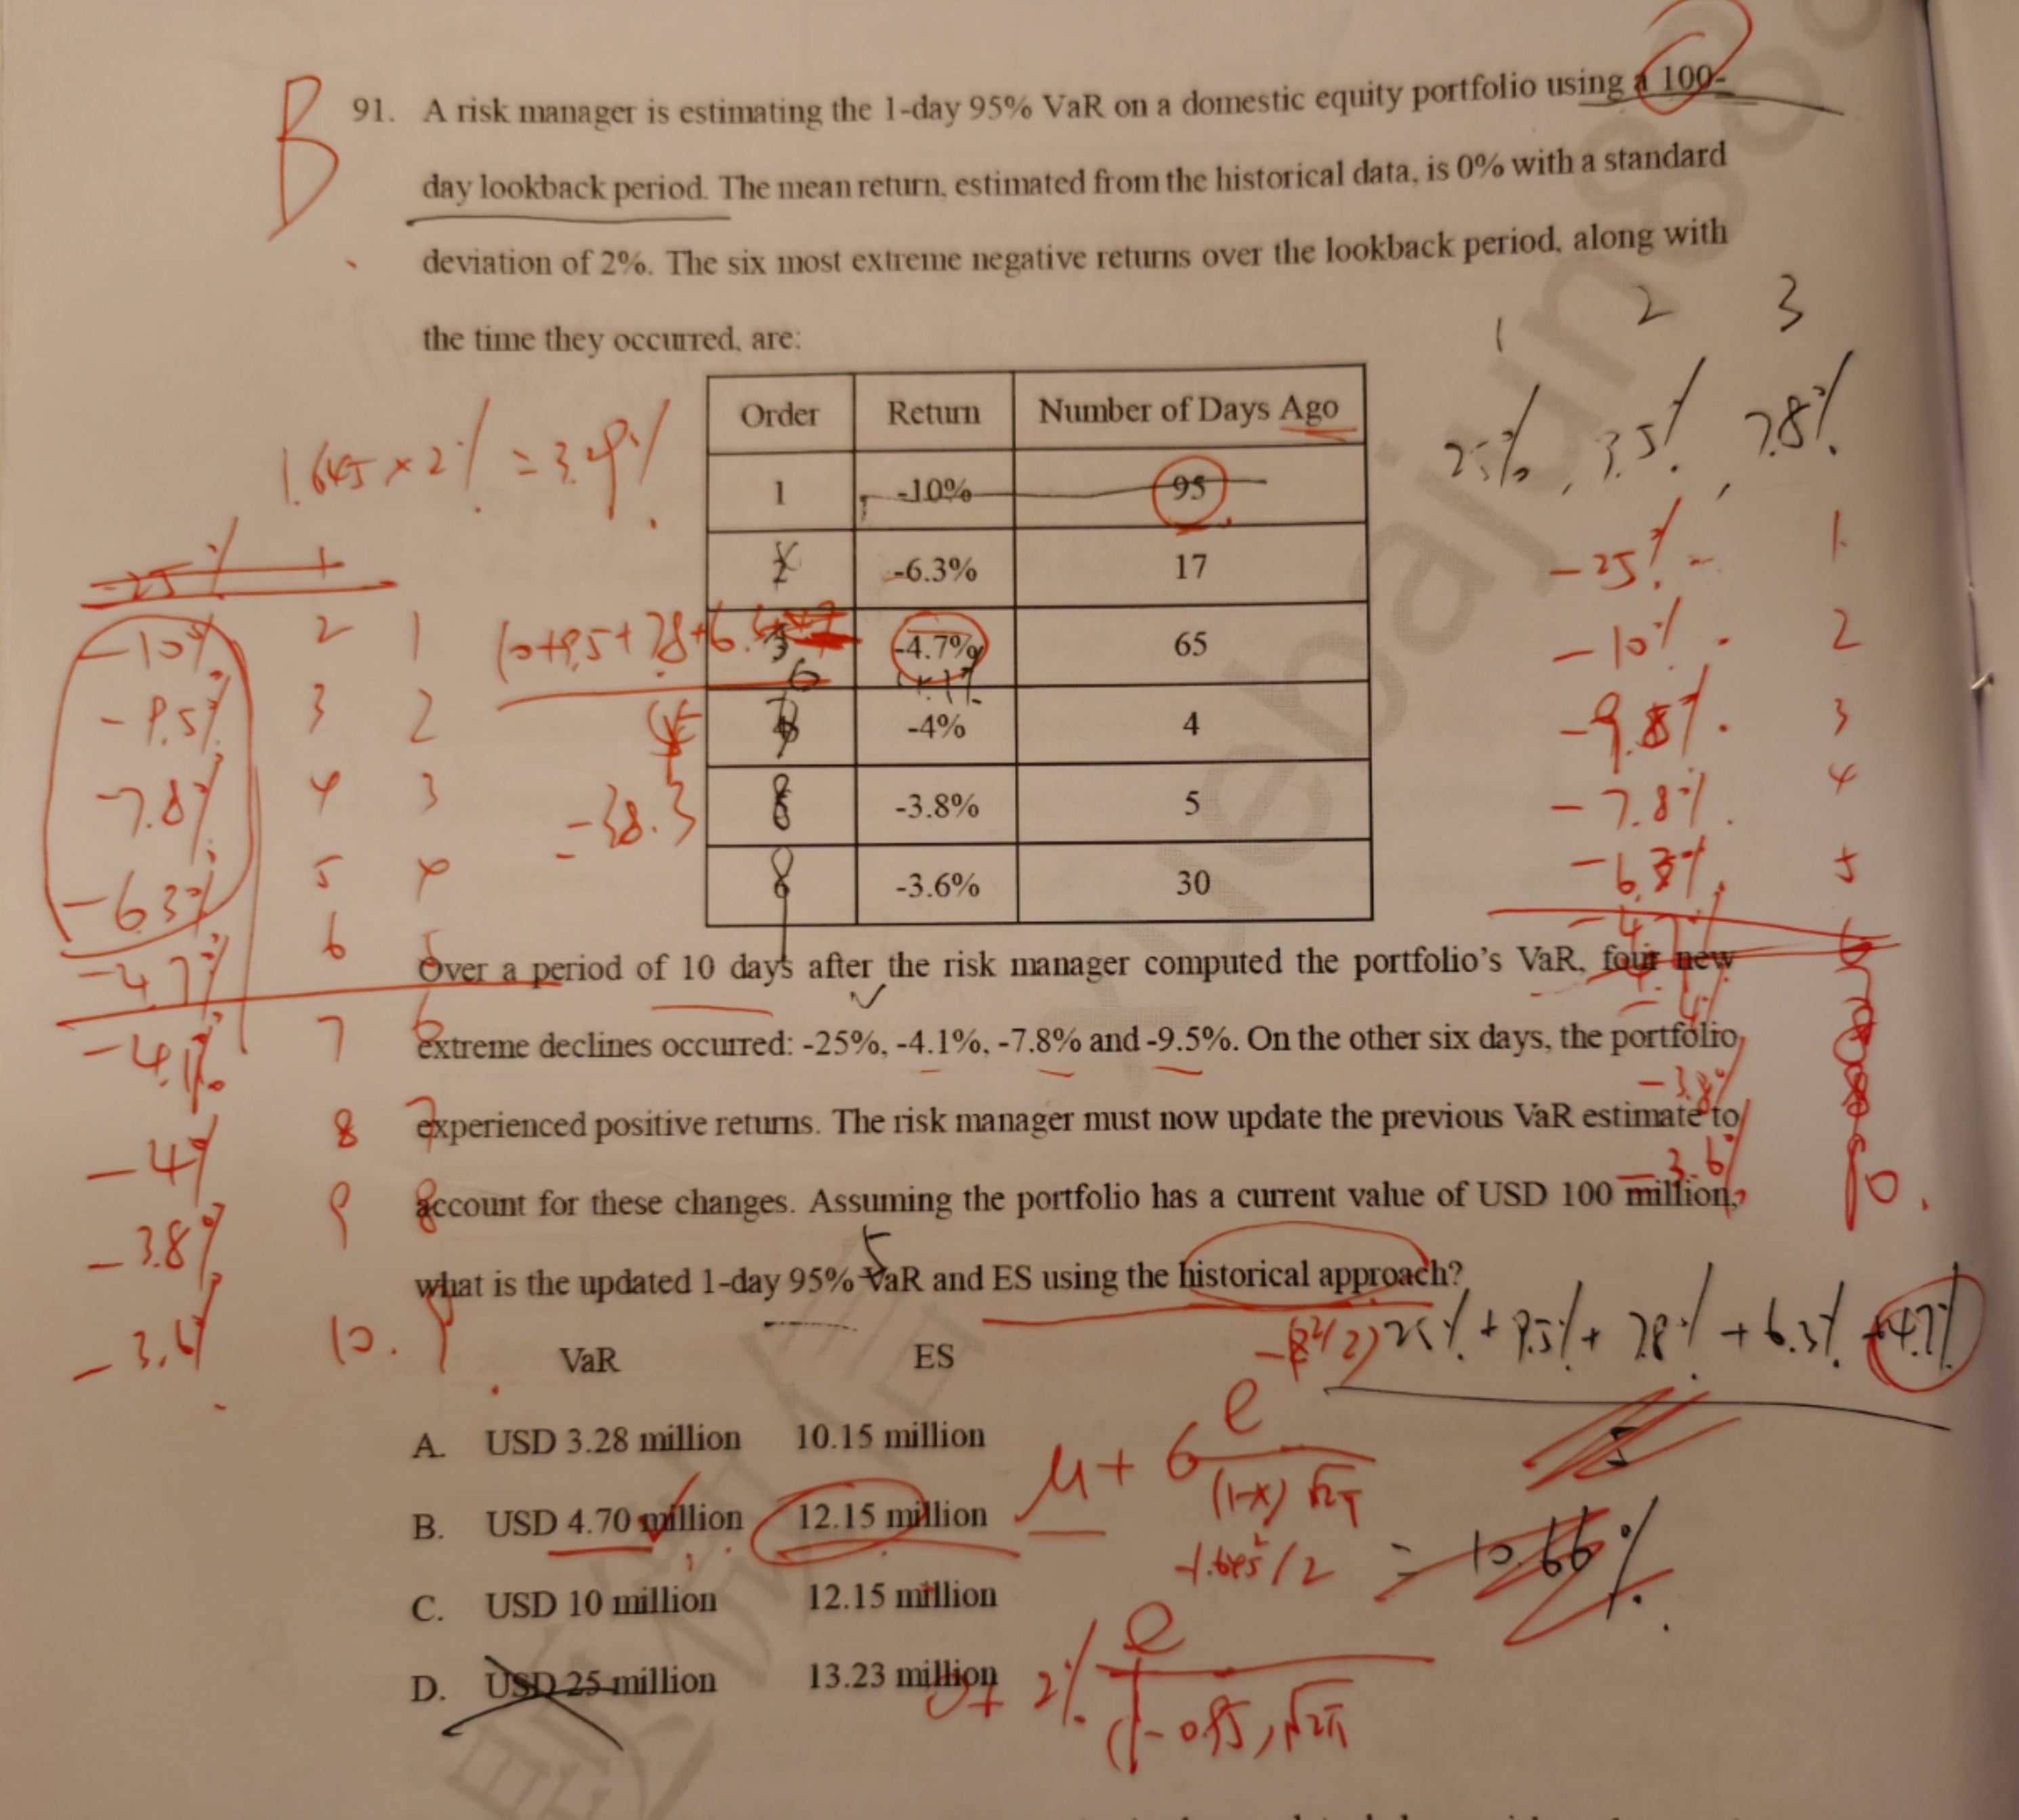 B
91. A risk manager is estimating the 1-day 95% VaR on a domestic equity portfolio using a 100-
day lookback period. The mean return, estimated from the historical data, is 0% with a standard
deviation of 2%. The six most extreme negative returns over the lookback period, along with
the time they occurred, are:
1 2 3
25%, 9.5%, 7.8%
1.645 × 2% = 3.29%
Order Return Number of Days Ago
1 -10% 95
2 -6.3% 17
3 -4.7% 65
4 -4% 4
5 -3.8% 5
6 -3.6% 30
-25% 1
-10% 2 1
-9.5% 3 2
-7.8% 4 3
-6.3% 5 4
-4.7% 6 5
-4.1% 7 6
-4% 8 7
-3.8% 9 8
-3.6% 10. 9
-25% 1
-10% 2
-9.8% 3
-7.8% 4
-6.3% 5
-4.7% 6
-4%
-3.8%
-3.6% 10.
Over a period of 10 days after the risk manager computed the portfolio's VaR, four new
extreme declines occurred: -25%, -4.1%, -7.8% and -9.5%. On the other six days, the portfolio
experienced positive returns. The risk manager must now update the previous VaR estimate to
account for these changes. Assuming the portfolio has a current value of USD 100 million,
what is the updated 1-day 95% VaR and ES using the historical approach?
25% + 9.5% + 7.8% + 6.3% + 4.7%
5
= 10.66%
VaR ES
A. USD 3.28 million 10.15 million
B. USD 4.70 million 12.15 million
C. USD 10 million 12.15 million
D. USD 25 million 13.23 million